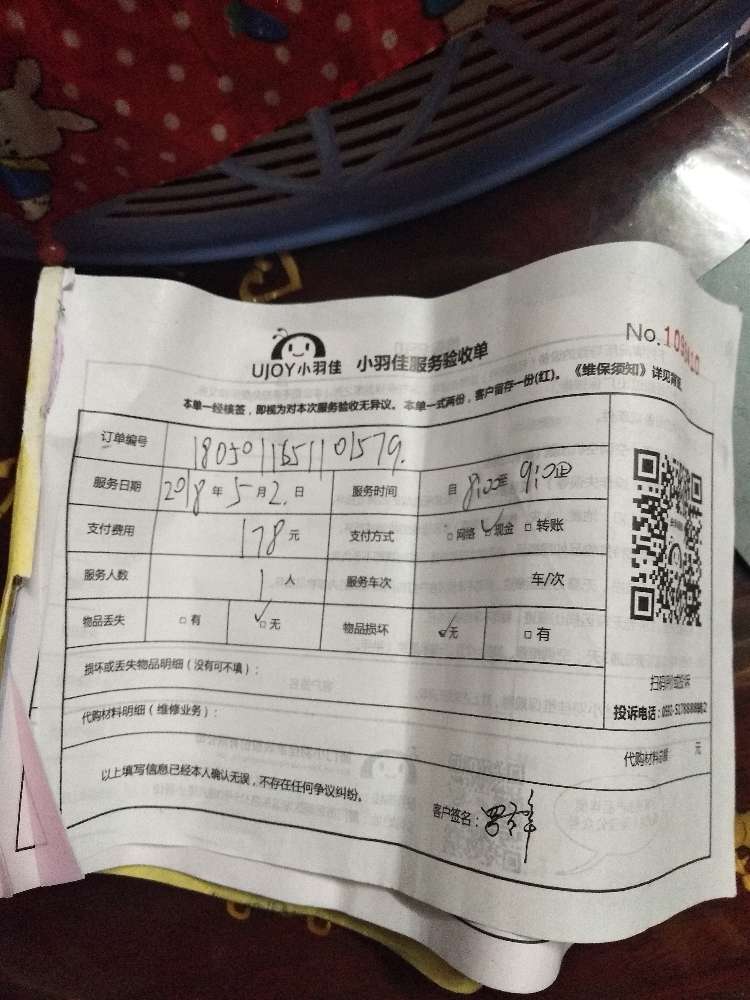 No.
UJOY小羽佳 小羽佳服务验收单
本单一经核签，即视为对本次服务验收无异议。本单一式两份，客户留存一份(红)。《维保须知》详见背面
订单编号 1805011651101579.
服务日期 2018年5月2日 服务时间 自8:00至9:10止
支付费用 178元 支付方式 □网络 ✓现金 □转账
服务人数 1人 服务车次 车/次
物品丢失 □有 ✓□无 物品损坏 ✓无 □有
损坏或丢失物品明细（没有可不填）：
扫码评价或投诉
投诉电话：0592-
代购材料明细（维修业务）：
代购材料总额 元
以上填写信息已经本人确认无误，不存在任何争议纠纷。
客户签名：